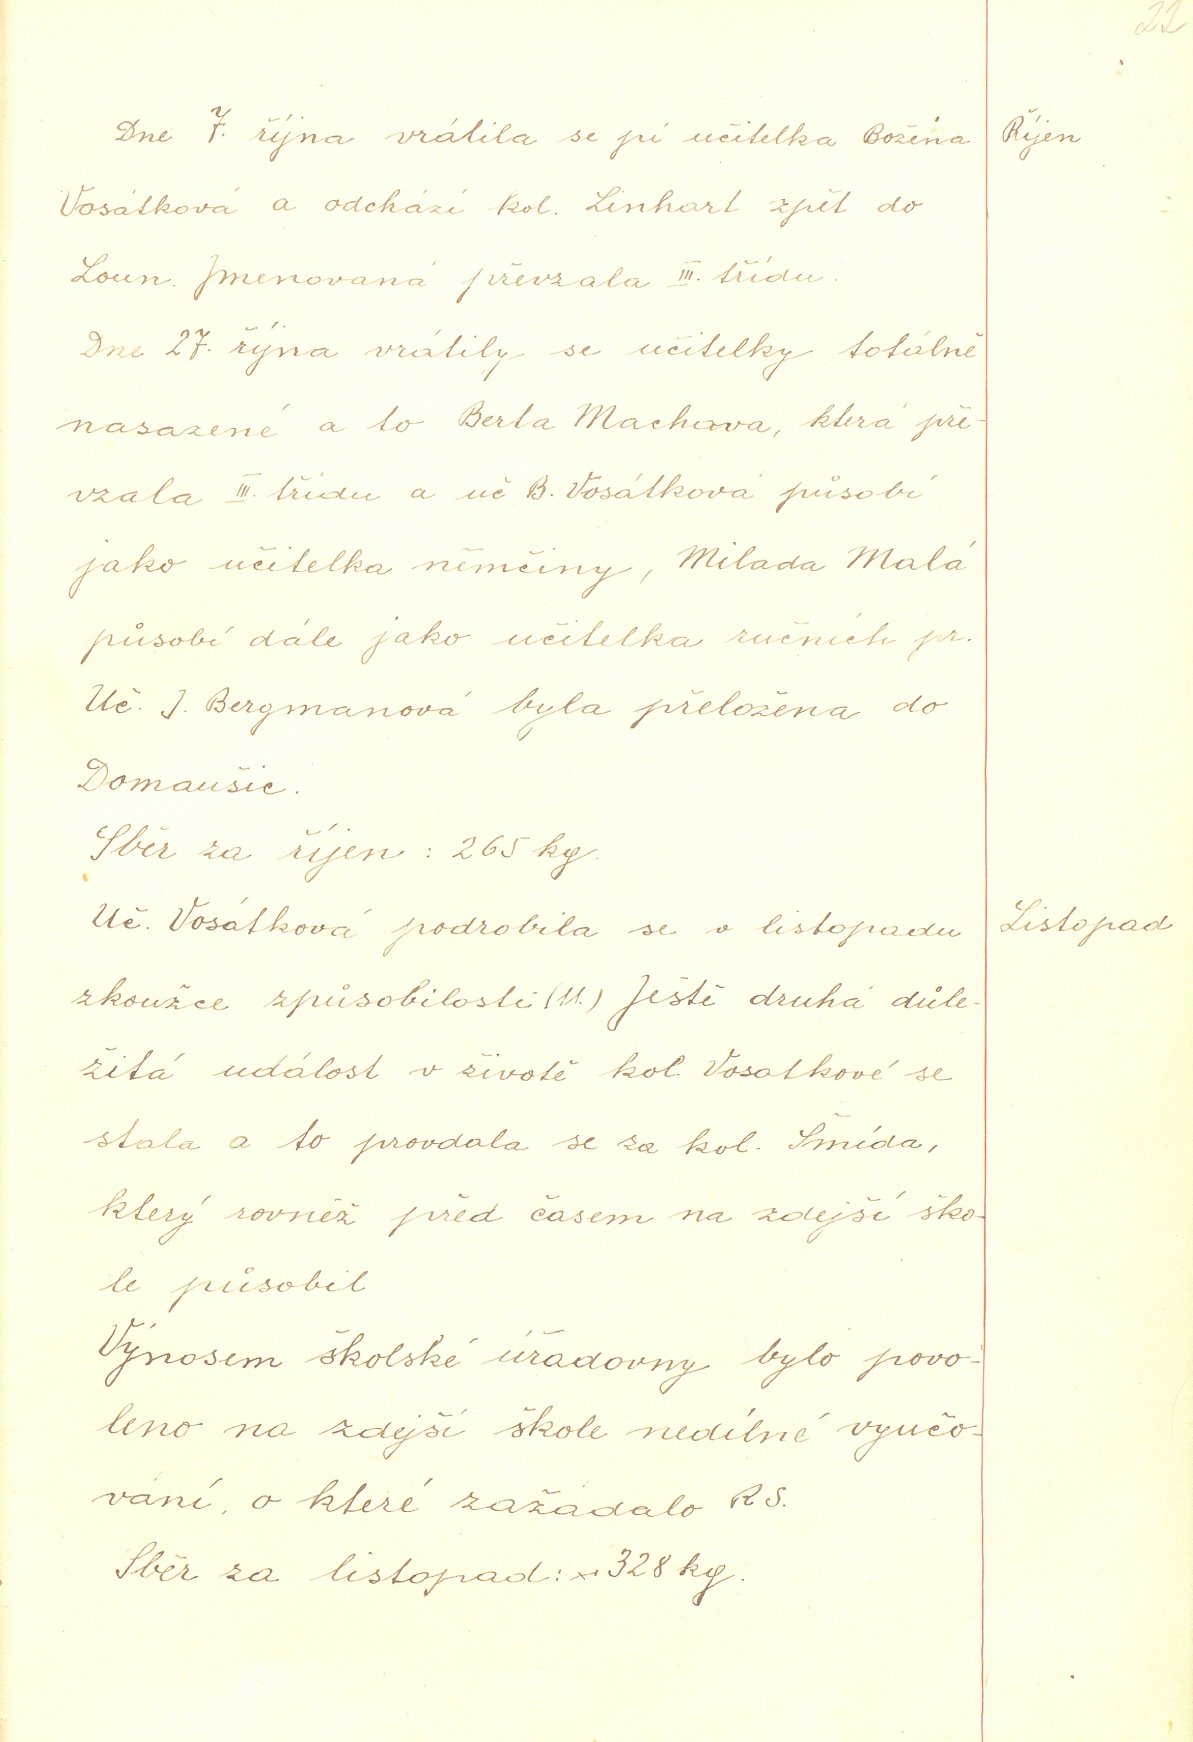 22
Dne 7. října vrátila se pí učitelka Božena
Říjen
Vosátková a odchází kol. Linhart zpět do
Loun. Jmenovaná převzala III. třídu.
Dne 27. října vrátily se učitelky totálně
nasazené a to Berta Machova, která pře-
vzala III. třídu a uč B. Vosátková působí
jako učitelka němčiny, Milada Malá
působí dále jako učitelka ručních pr.
Uč. J. Bergmanová byla přeložena do
Domaušic.
Sběr za říjen : 265 kg.
Uč. Vosátková podrobila se v listopadu
Listopad
zkoužce způsobilosti (11.) Ještě druhá důle-
žitá událost v životě kol. Vosatkové se
stala a to provdala se za kol. Šmída,
který rovněž před časem na zdejší ško-
le působil
Výnosem školské úřadovny bylo povo-
leno na zdejší škole nedílné vyučo-
vání, o které zažádalo R S.
Sběr za listopad: 328 kg.